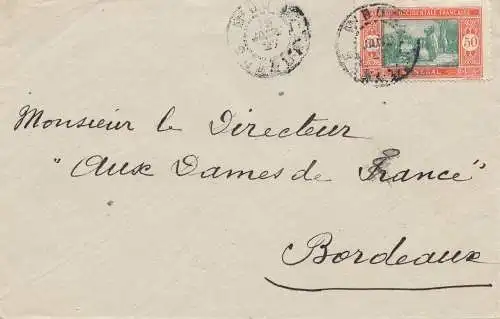 OCCIDENTALE FRANÇAISE
50
Monsieur le Directeur
"Aux Dames de France"
Bordeaux